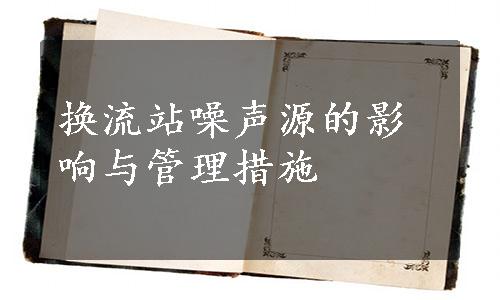 换流站噪声源的影
响与管理措施